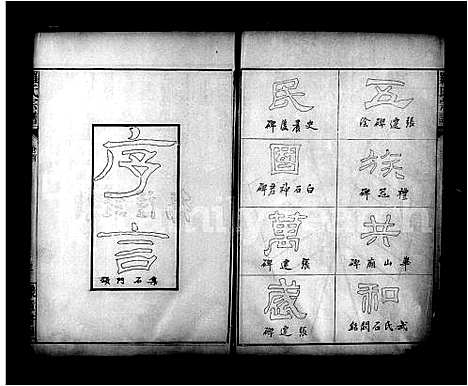 五
張遷碑陰
族
碑
共
華山廟碑
和
武氏石闕銘
民
史晨後碑
國
白石神君碑
萬
張遷碑
歲
張遷碑
序言
石門頌